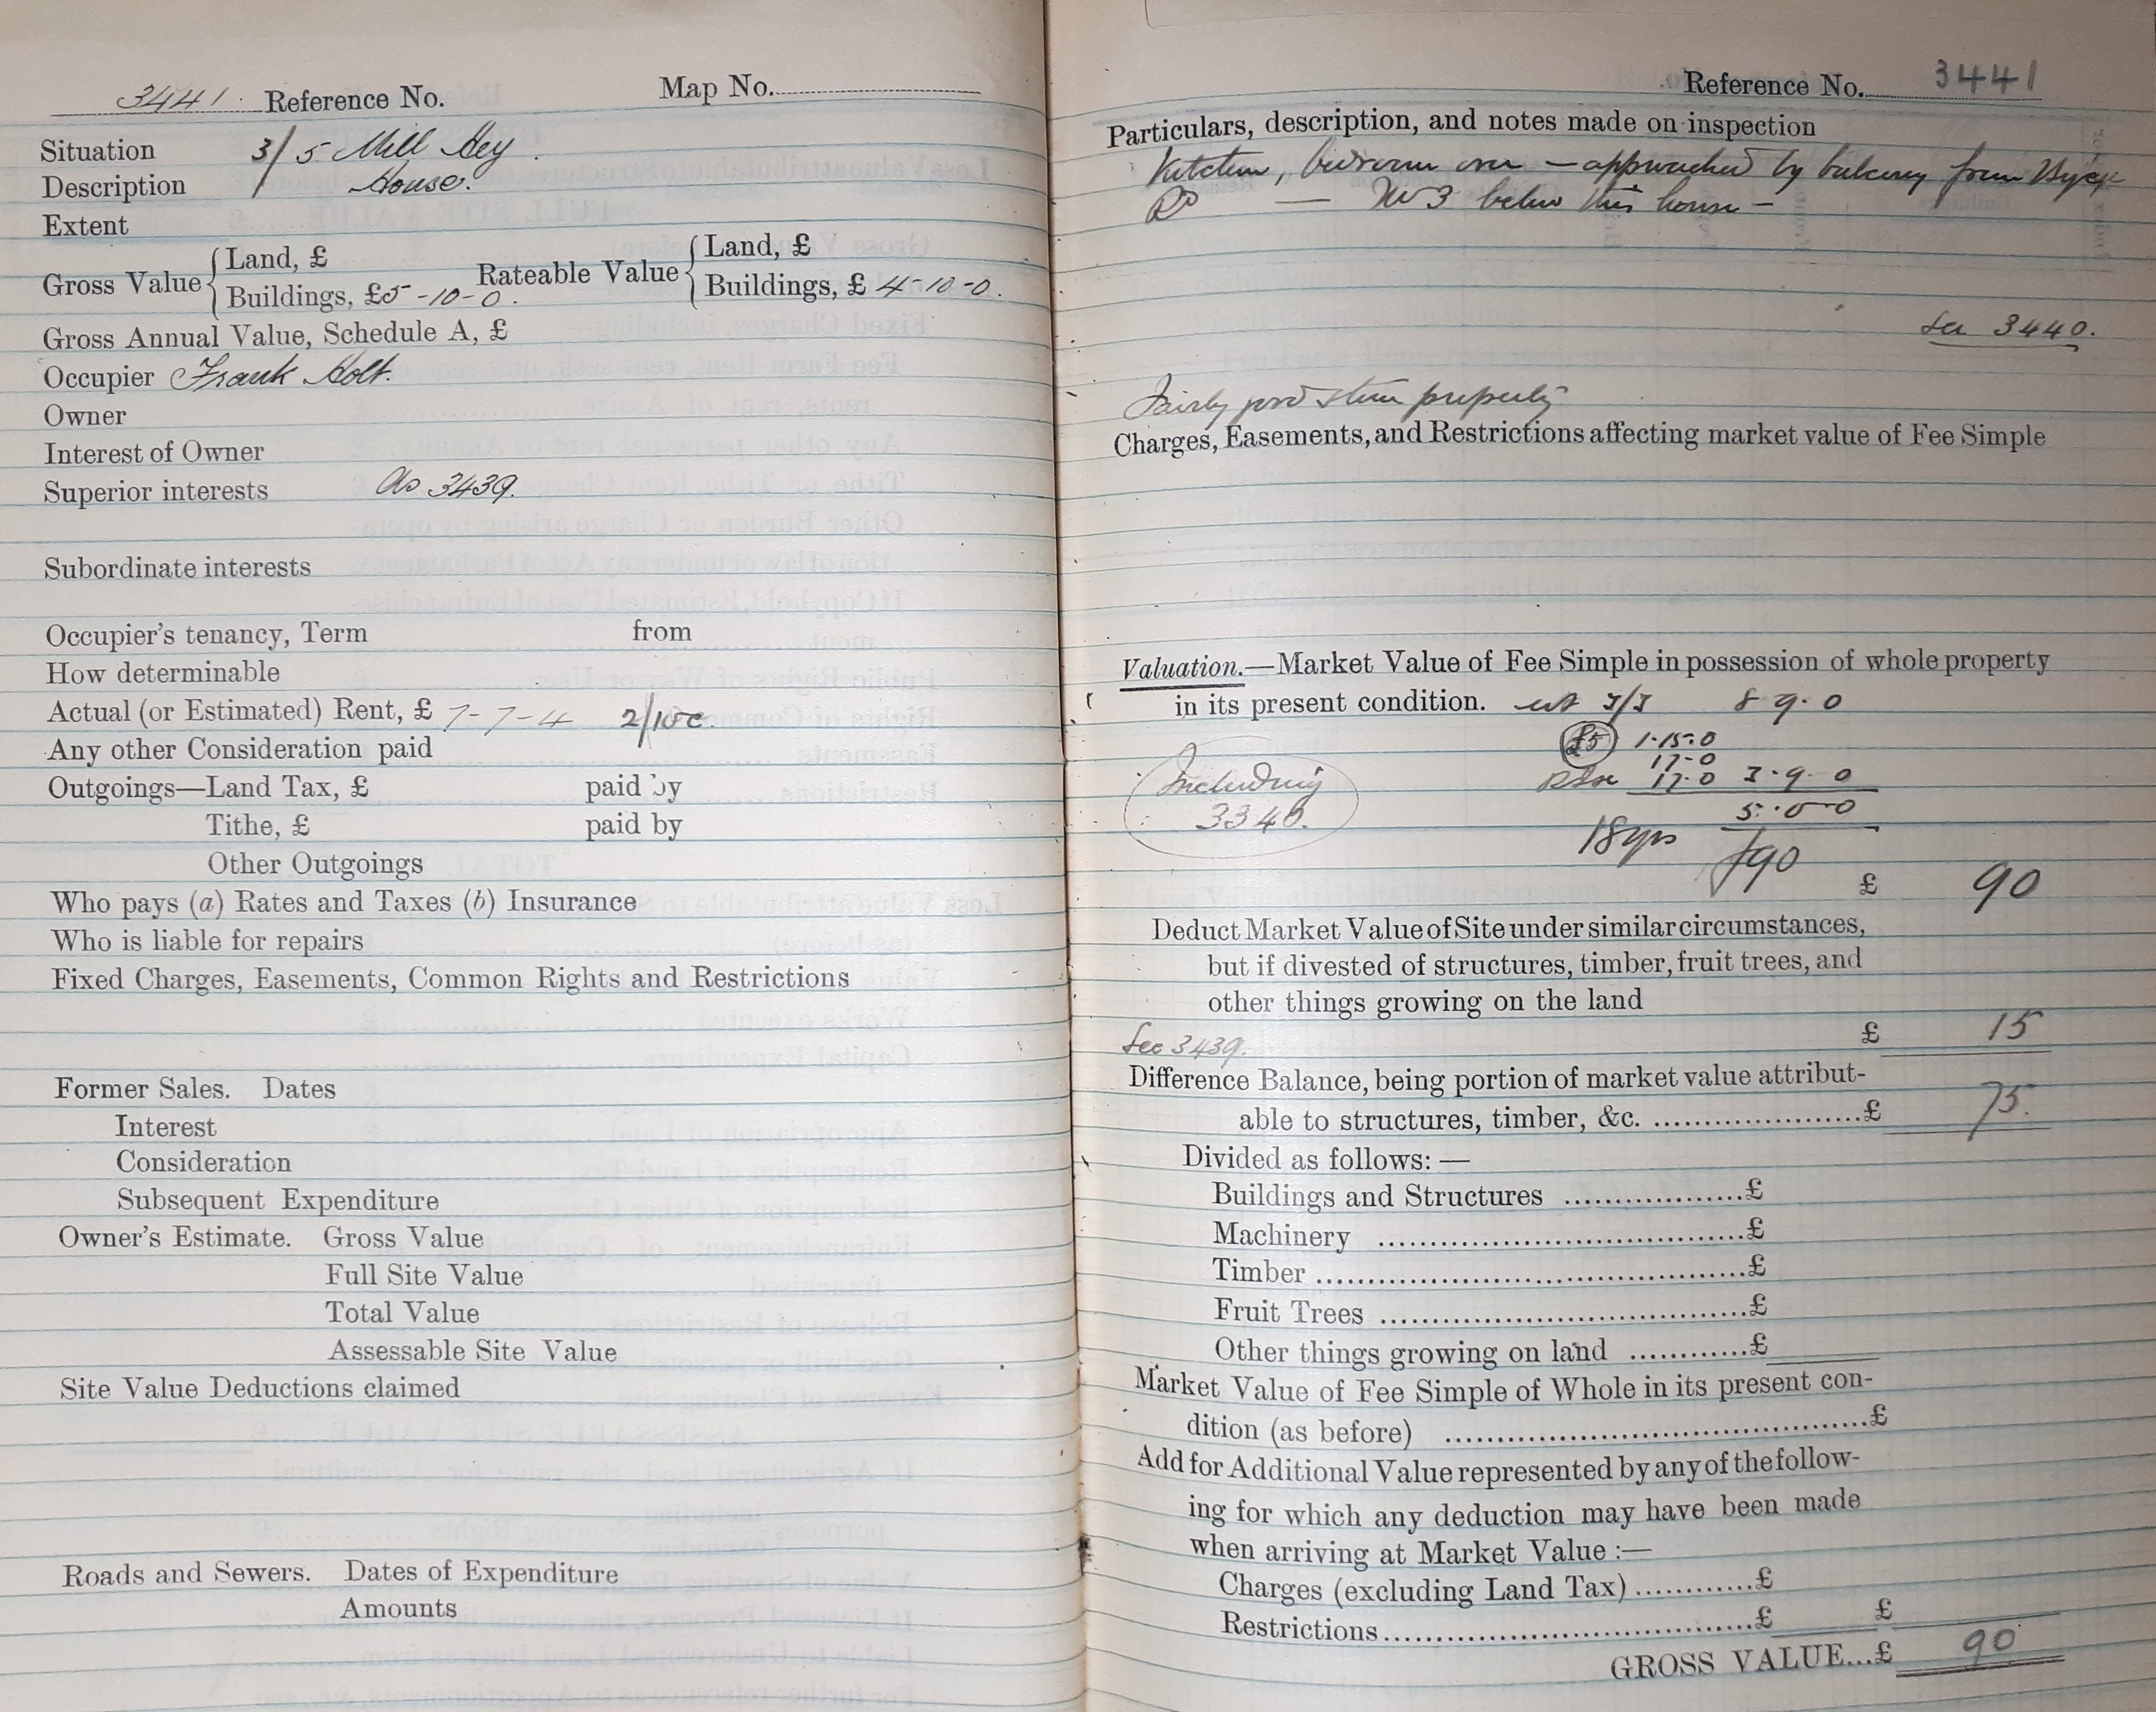 3441 Reference No. Map No.
Situation 3/5 Mill Hey
Description House.
Extent
Gross Value { Land, £ Rateable Value { Land, £
Buildings, £5-10-0. Buildings, £ 4-10-0.
Gross Annual Value, Schedule A, £
Occupier Frank Holt.
Owner
Interest of Owner
Superior interests As 3439.
Subordinate interests
Occupier's tenancy, Term from
How determinable
Actual (or Estimated) Rent, £ 7-7-4 2/10 c.
Any other Consideration paid
Outgoings—Land Tax, £ paid by
Tithe, £ paid by
Other Outgoings
Who pays (a) Rates and Taxes (b) Insurance
Who is liable for repairs
Fixed Charges, Easements, Common Rights and Restrictions
Former Sales. Dates
Interest
Consideration
Subsequent Expenditure
Owner's Estimate. Gross Value
Full Site Value
Total Value
Assessable Site Value
Site Value Deductions claimed
Roads and Sewers. Dates of Expenditure
Amounts
Reference No. 3441
Particulars, description, and notes made on inspection
Kitchen, bedroom over — approached by balcony from
Rd — No 3 below this house —
See 3440.
Fairly good stone property
Charges, Easements, and Restrictions affecting market value of Fee Simple
Valuation.—Market Value of Fee Simple in possession of whole property
in its present condition. est 3/3 8 9.0
£5 1.15.0
17-0
17.0 3.9.0
Including
3340.
5.0-0
18 yrs £90
£ 90
Deduct Market Value of Site under similar circumstances,
but if divested of structures, timber, fruit trees, and
other things growing on the land
See 3439. £ 15
Difference Balance, being portion of market value attribut-
able to structures, timber, &c. ....................£ 75.
Divided as follows: —
Buildings and Structures ..................£
Machinery ....................................£
Timber ...........................................£
Fruit Trees ....................................£
Other things growing on land ............£
Market Value of Fee Simple of Whole in its present con-
dition (as before) ..........................................£
Add for Additional Value represented by any of the follow-
ing for which any deduction may have been made
when arriving at Market Value :—
Charges (excluding Land Tax) ............£
Restrictions.....................................£ £
GROSS VALUE...£ 90